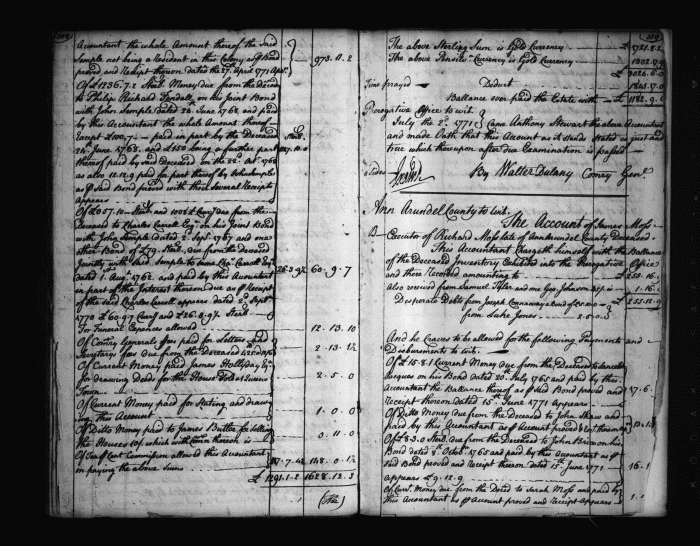 Accountant the whole Amount thereof the said
Sample not being a Resident in this Colony as
proved and Receipt thereon dated the 27th April 1771 appears
973.11.2
Of £1236.7.2 Sterl. Money due from the deceased
to Philip Richard Fendall, on his Joint Bond
with John Semple dated 24th June 1762 and paid
by this Accountant the whole Amount thereof
Except £100.. paid in part by the Deceased
24th June 1763. and £150 being a further part
thereof paid by said Deceased on the 22d Oct. 1762
as also 12.12.9 paid for part thereof by John Semple
as p said Bond proved with their Several Receipts
appears
Of £ 1057.10 Sterl. and 100 £ Curr. due from the
Deceased to Charles Carroll Esq. on his Joint Bond
with John Semple dated 2 Sept. 1767 and one
other Bond of £79 Sterl. due from the deceased
Jointly with said Semple to same Chs. Carroll Esq.
dated 1st Augt. 1762. and paid by this Accountant
in part of the Interest thereon due as p Receipt
of the said Charles Carroll appears dated 2d Sept.
1770 £ 60.9.7 Curr. and £ 26.3.9½ Sterl.
26.3.9½ 60.9.7
For Funeral Expences allowed
12.13.10
Of Contry Generals fees paid for Letters and
Secretarys fees due from the Deceased
2.13.1½
Of Current Money paid James Hollyday Esq.
for drawing Deeds for the House Sold at Queens
Town
2.5.0
Of Current Money paid for Stating and drawing
this Account
1.0.0
Of Ditto Money paid to James Butler for Selling
the Houses of which with Comn. thereon is
0.11.0
Of Ten p Cent Commission allowed this Accountant
on paying the above Sums
117.7.4½ 148.0.1½
£ 1291.1.2 1628.12.3
The above Sterling Sum is Gold Currency £ 1721.8.2
The above Pensilv. Currency is Gold Currency 1302.17.9
3024.6.0
Time prayed Deduct 1841.17.0
Ballance over paid the Estate with £ 1182.9.0
Prerogative Office to wit
July the 2d. 1771. Came Anthony Stewart the above Accountant
and made Oath that this Account as it stands stated is just and
true which thereupon after due Examination is passed
By Walter Dulany Comry Genl.
Ann Arundel County to wit.
The Account of James Moss
Executor of Richard Moss late of Ann Arundel County Deceased.
This Accountant Chargeth himself with the Ballance
of the Deceased Inventory Exhibited into the Prerogative Office
and there Recorded amounting to £ 253.16.
Also received from Samuel Tyler and me Geo. Johnson 35/ is 1.16.
£ 255.12.9
Desperate Debts from Joseph Connaway a Bond of £5.0.0
from Luke Jones 2.0.0
And he Craves to be allowed for the following Payments and
Disbursements to wit.
Of £ 15.8.1 Current Money due from the Deceased to Lancelot
Jacques on his Bond dated 20th July 1765 and paid by this
Accountant the Ballance thereof as p said Bond proved and
Receipt thereon dated 15th June 1771 Appears
17.6.
Of Ditto Money due from the Deceased to John Shaw and
paid by this Accountant as p Account proved & Rect. thereon app.
Of £ 8.3.0 Sterl. due from the Deceased to John Brice on his
Bond dated 8th Octobr. 1765 and paid by this Accountant as p
said Bond proved and Receipt thereon dated 15th June 1771
appears £ 9.12.9
16.1
Of Curr. Money due from the Deced. to Sarah Moss and paid by
this Accountant as p Account proved and Receipt Appears
1.